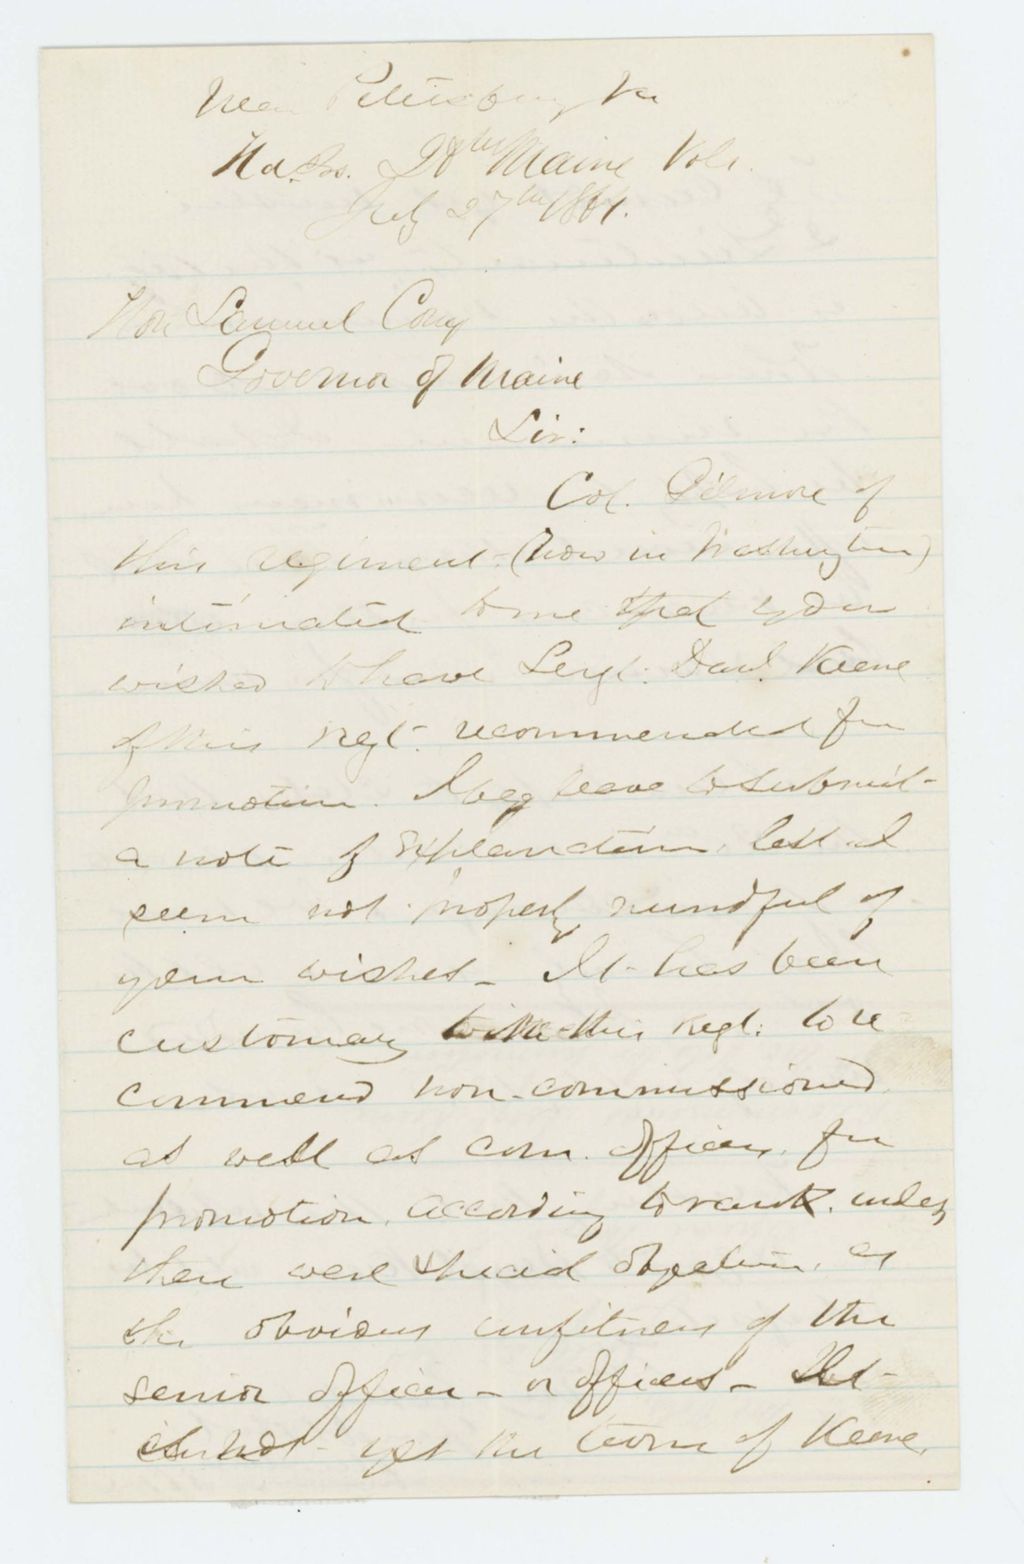 Near Petersburg Va
Hd. Qrs. 20th Maine Vols.
July 27th 1864.
Hon Samuel Cony
Governor of Maine
Sir:
Col. Gilmore of
this regiment - (now in Washington)
intimated to me that you
wished to have Sergt. Danl. Keene
of this regt. recommended for
promotion. I beg leave to submit
a note of explanation, lest I
seem not properly mindful of
your wishes - It has been
customary with this Regt: to re-
commend non-commissioned
as well as com. officers, for
promotion, according to rank, unless
there were special objections, as
the obvious unfitness of the
senior officer - or officers -
is not yet the turn of Keene,